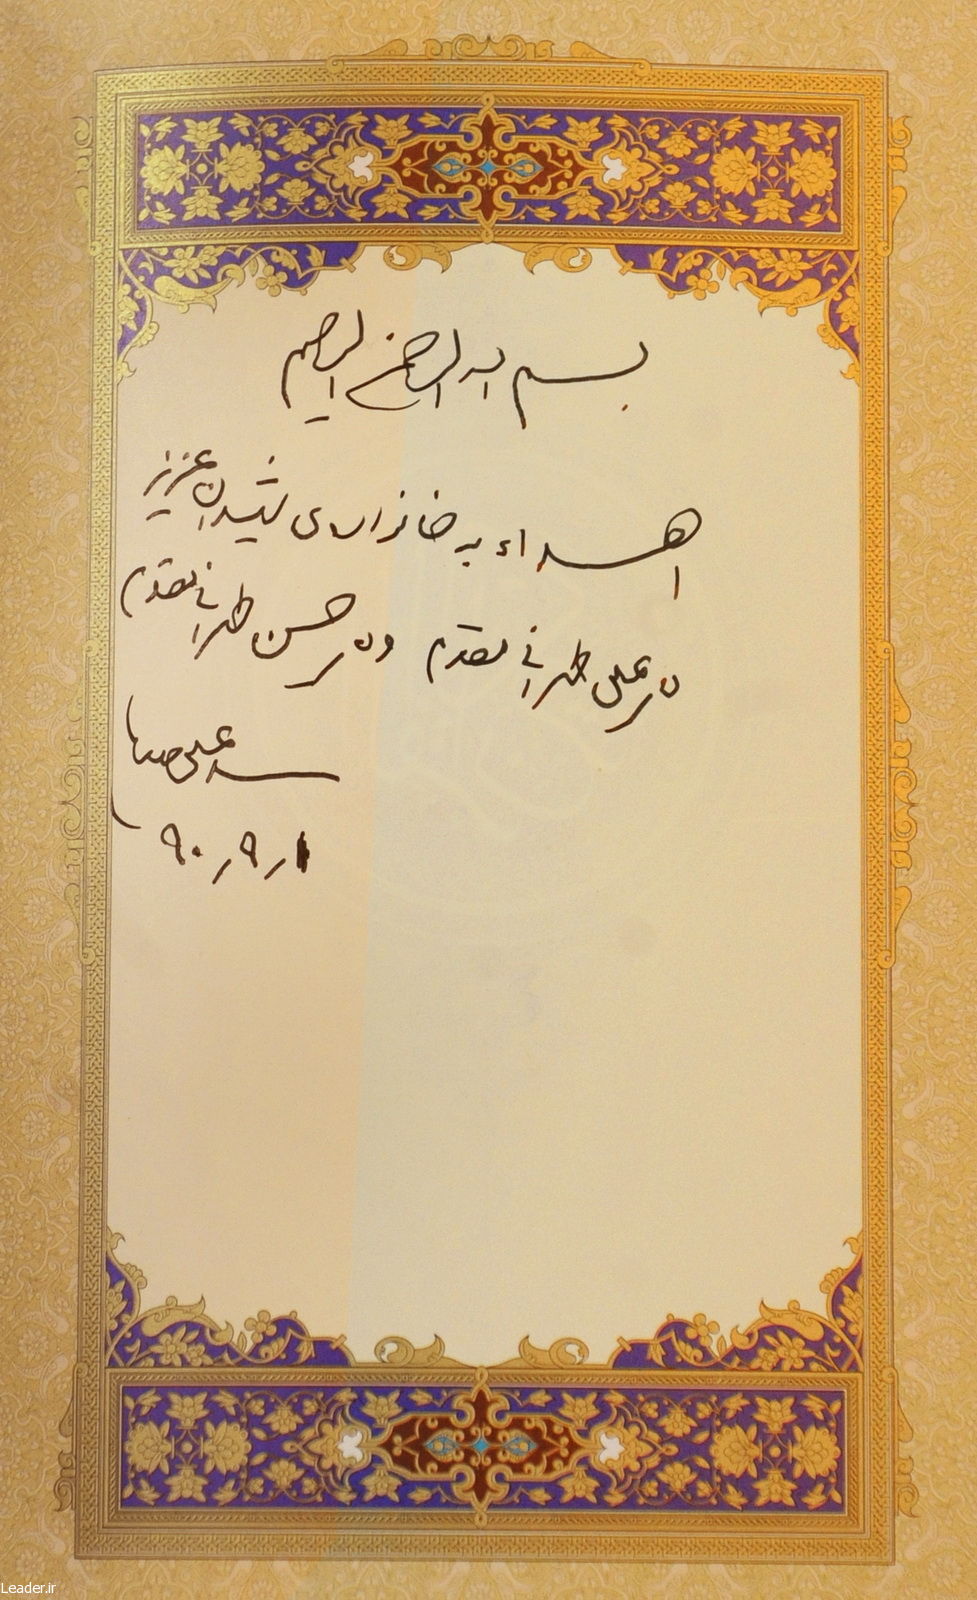 بسم الله الرحمن الرحیم
اهداء به خانواده‌ی شهیدان عزیز
علی طهرانی مقدم و حسن طهرانی مقدم
سید علی خامنه‌ای
۹۰٫۹٫۱
Leader.ir